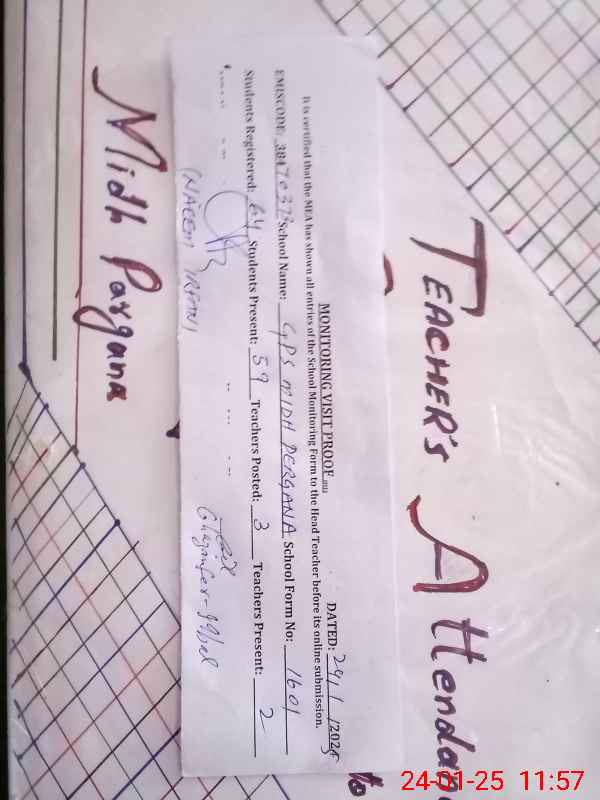 TEACHER'S Attendanc
MONITORING VISIT PROOF
DATED: 24/1/2025
It is certified that the MEA has shown all entries of the School Monitoring Form to the Head Teacher before its online submission.
EMISCODE: 38470373 School Name: GPS MIDH PERGANA School Form No: 1601
Students Registered: 64 Students Present: 59 Teachers Posted: 3 Teachers Present: 2
(NAEEM IRFAN)
Midh Pargana
24-01-25 11:57